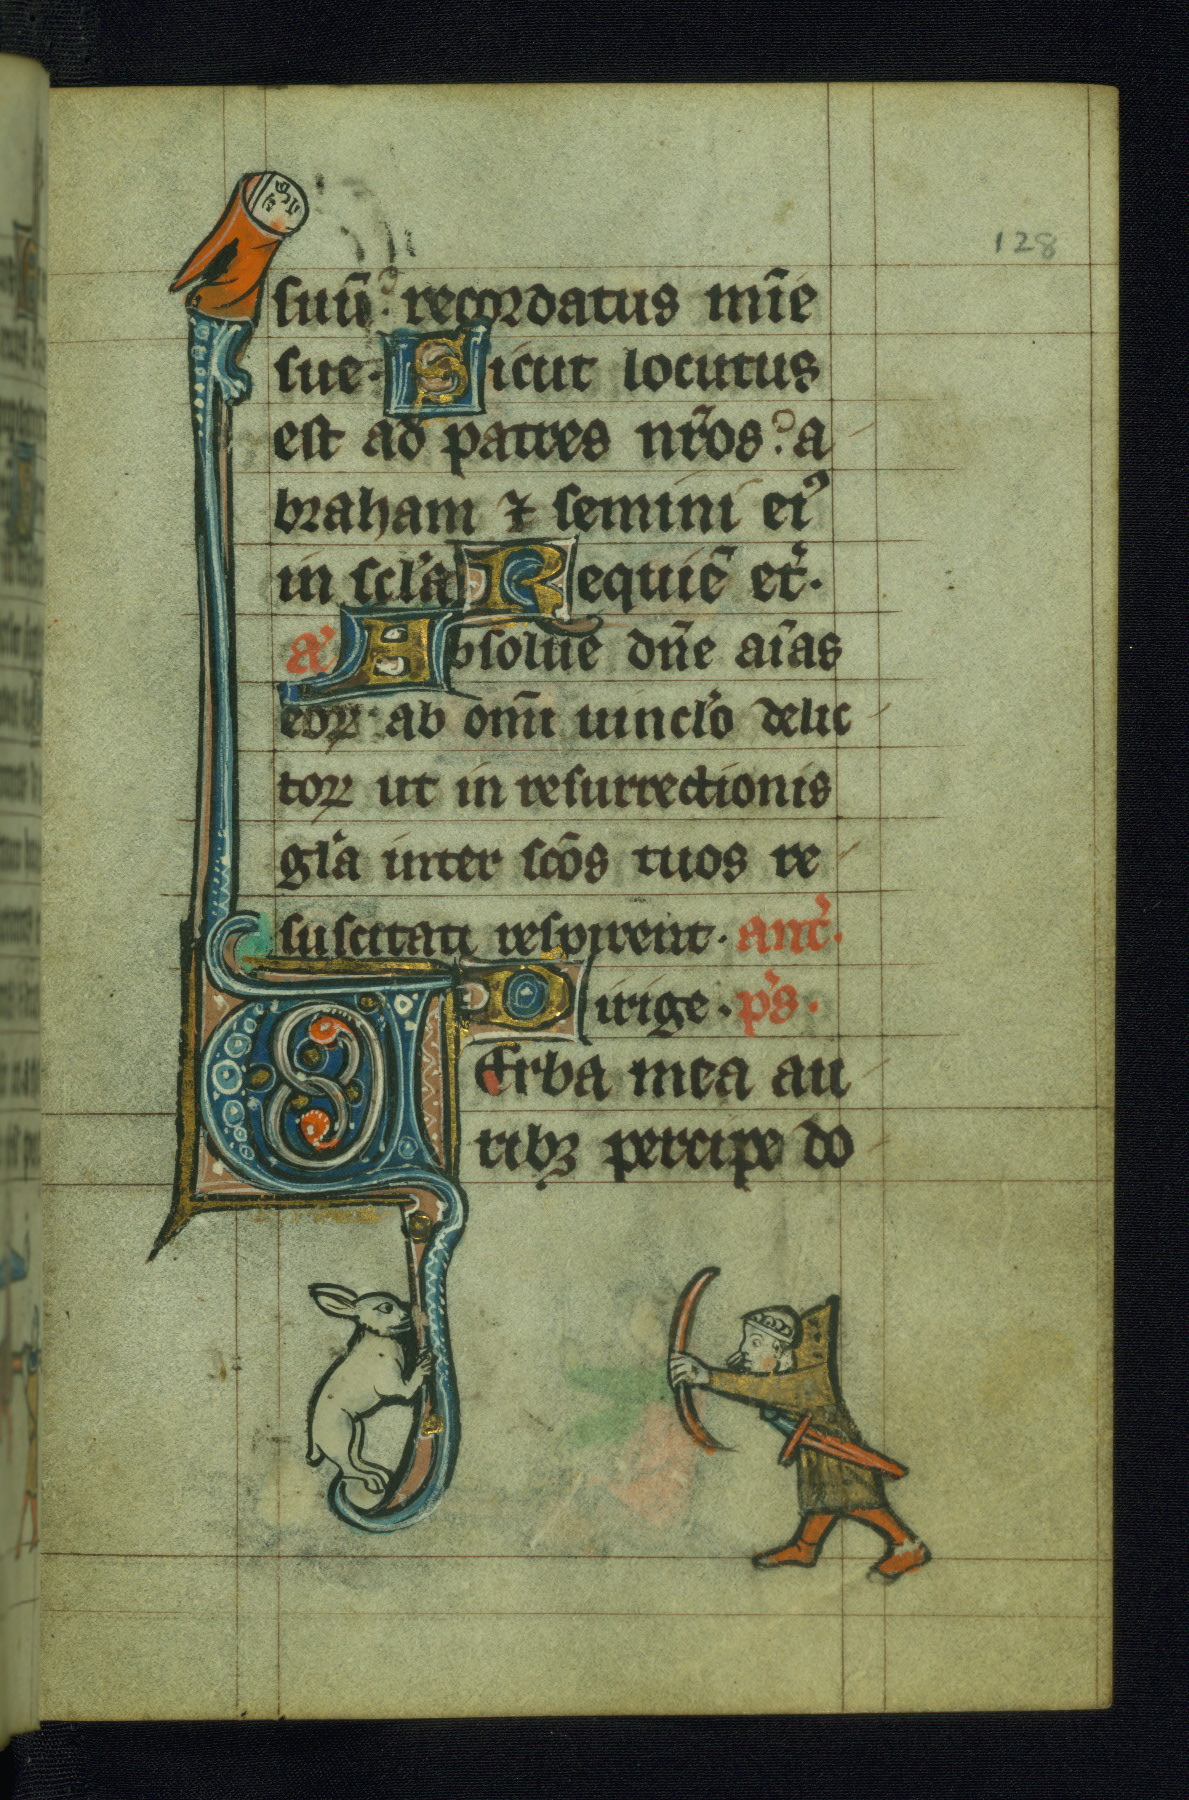 128
suū: recordatus mīe
sue. Sicut locutus
est ad patres nr̄os: a
braham ⁊ semini eiꝰ
in scl̓a Requiē et̓.
a̓ Absolue dn̄e aīas
eoꝝ ab om̄i uincl̓o delic
toꝝ ut in resurrectionis
gl̓a inter sc̄os tuos re
suscitati respirent. ant̓.
Dirige. p̓s.
Verba mea au
ribꝫ percipe do